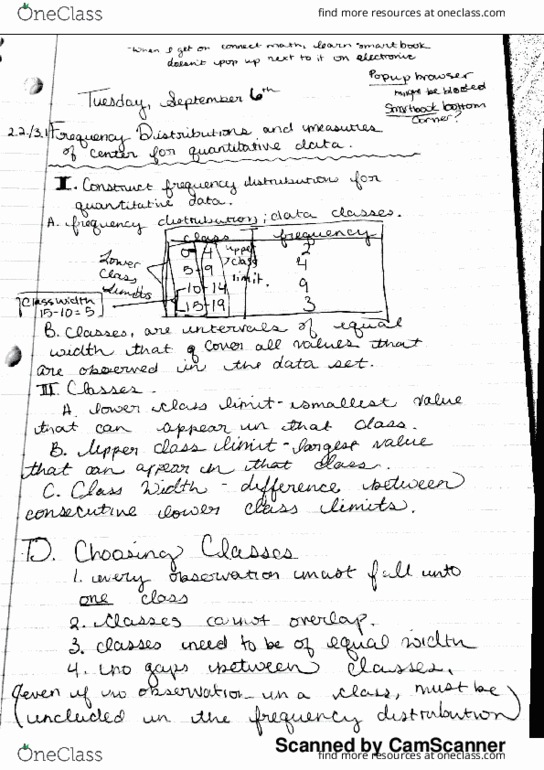 OneClass
find more resources at oneclass.com
-when I get on connect math, learn smartbook
doesn't pop up next to it on electronic
Popup browser
might be blocked
Smartbook bottom
corner?
Tuesday, September 6th
2.2/3.1 Frequency Distributions, and measures
of center for quantitative data.
I. Construct frequency distribution for
quantitative data.
A. frequency distribution; data classes.
class frequency
0-4 2
5-9 4
10-14 9
15-19 3
upper
class
limit.
Lower
Class
Limits
Class width
15-10=5
B. Classes, are intervals of equal
width that cover all values that
are observed in the data set.
II Classes.
A. lower class limit - smallest value
that can appear in that class.
B. Upper class limit - largest value
that can appear in that class.
C. Class Width - difference between
consecutive lower class limits.
D. Choosing Classes
1. every observation must fall into
one class
2. Classes cannot overlap.
3. classes need to be of equal width
4. no gaps between classes.
(even if no observation in a class, must be
included in the frequency distribution)
Scanned by CamScanner
OneClass
find more resources at oneclass.com